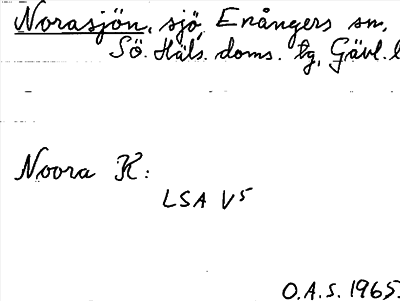 Norasjön, sjö, Enångers sn,
Sö. Häls. doms. lg, Gävl. l
Noora K:
LSA V5
O.A.S. 1965.